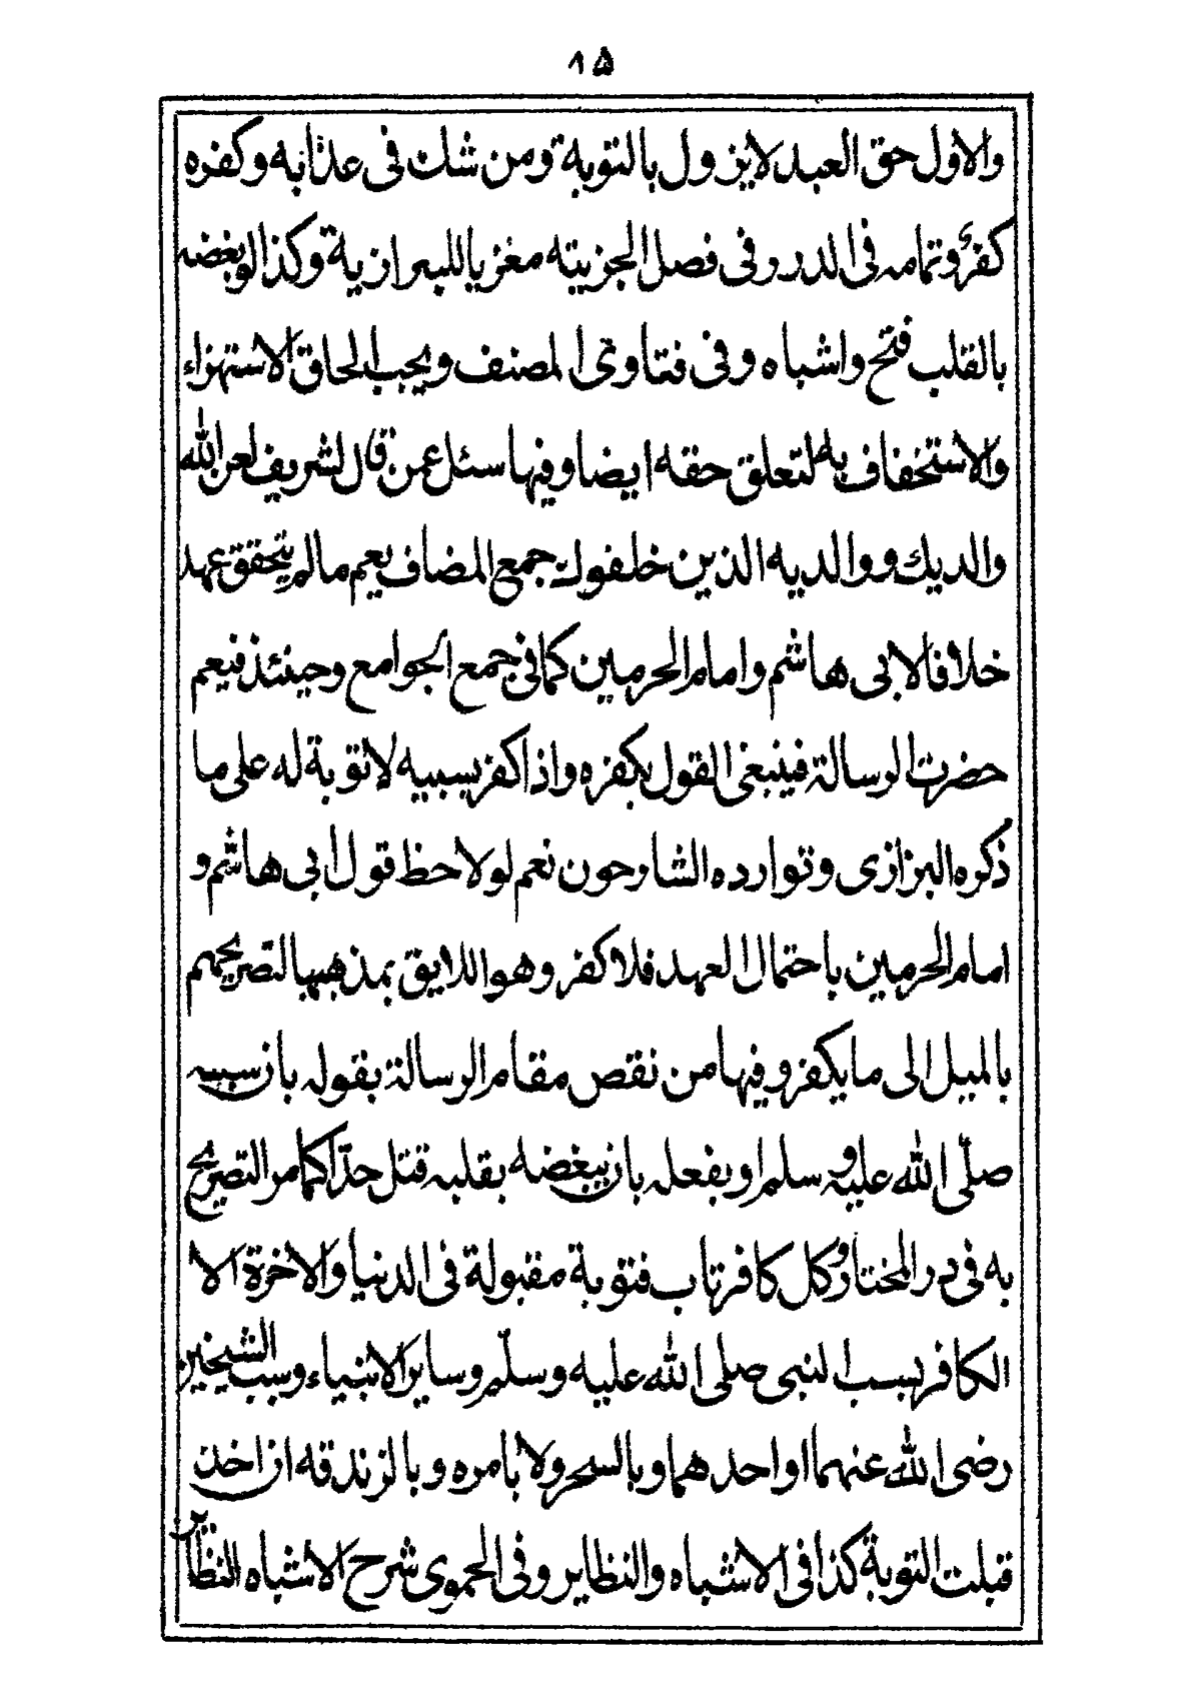 ١٥
والاول حق العبد لايزول بالتوبة ومن شك فى عذابه وكفره
كفر وتمامه فى الدرر وفى فصل الجزيته مغزيا للبزازية وكذا لو بغضه
بالقلب فتح واشباه وفى فتاوى المصنف ويجب الحاق الاستهزاء
والاستخفاف به لتعلق حقه ايضا وفيها سئل عمن قال لشريف لعن الله
والديك ووالديه الذين خلفوك جمع المضاف يعم مالم يتحقق عهد
خلافا لابى هاشم وامام الحرمين كما فى جمع الجوامع وحينئذ فيعم
حضرت الرسالة فينبغى القول بكفره واذا كفر بسبيه لا توبة له على ما
ذكره البزازى وتوارده الشارحون نعم لو لاحظ قول ابى هاشم و
امام الحرمين باحتمال العهد فلا كفر وهو اللايق بمذهبها لتصريحهم
بالميل الى ما يكفر وفيها من نقص مقام الرسالة بقوله بان سبه
صلّى الله عليه وسلم او بفعله بان يبغضه بقلبه قتل حدّا كما مر التصريح
به فى در المختار وكل كافر تاب فتوبة مقبولة فى الدنيا والاخرة الا
الكافر بسب النبى صلى الله عليه وسلّم وساير الانبياء وسب الشيخين
رضى الله عنهما او احدهما وبالسحر ولا بامره وبالزندقه ان اخذن
قبلت التوبة كذا فى الاشباه والنظاير وفى الحموى شرح الاشباه النظاير